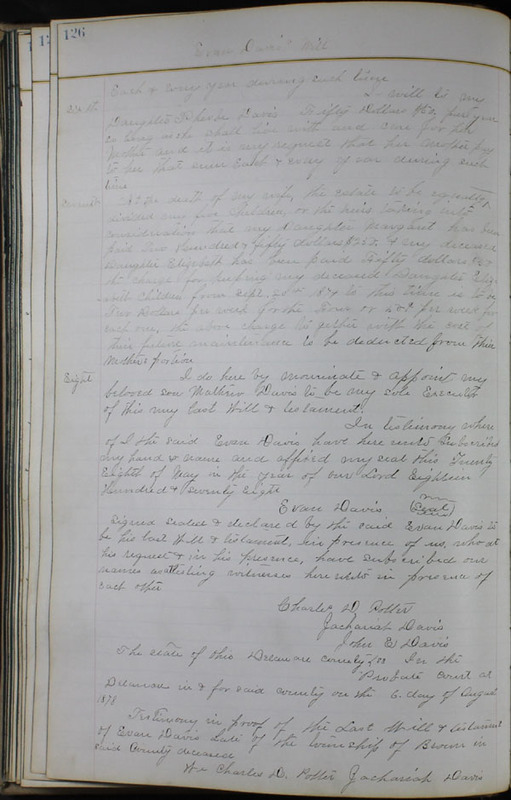 126
Evan Davis' Will
Each & every year during such time
I will to my
Daughter Phebe Davis Fifty Dollars $50 per year
so long as she shall live with and care for her
Mother and it is my request that her
to her that sum Each & every year during such
time
At the death of my wife, the estate to be equally
divided my five children, or the heirs taking into
consideration that my Daughter Margaret has been
paid Two Hundred & fifty dollars & my deceased
Daughter Elizabeth has been paid Fifty dollars
the charge for keeping my deceased Daughter
Children from Sept. 1874 to this time is to be
Two Dollars per week for the Four or 50¢ per week for
each one, the above charge to gether with the cost of
their future maintainence to be deducted from their
Mothers portion
Eight I do here by nominate & appoint my
beloved son Matthew Davis to be my sole Executor
of this my last Will & testament.
In testimony where
of I the said Evan Davis have here unto Subscribed
my hand & name and affixed my seal this Twenty
Eighth of May in the year of our Lord Eighteen
Hundred & Seventy Eight
Evan Davis (Seal)
Signed sealed & declared by the said Evan Davis to
be his last Will & testament, in presence of us, who at
his request & in his presence, have subscribed our
names as witnesses here unto in presence of
each other
Charles D. Potter
Zachariah Davis
John E Davis
The state of Ohio Delaware County ss In the
Probate Court at
Delaware in & for said county on the 6. day of August
1878
Testimony in proof of the Last Will & testament
of Evan Davis Late of the township of Brown in
said County deceased
We Charles D. Potter Zachariah Davis